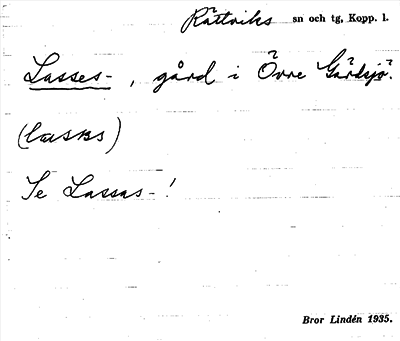 Rättviks sn och tg, Kopp. l.
Lasses-, gård i Övre Gärdsjö.
Se Lassas-!
Bror Lindén 1935.